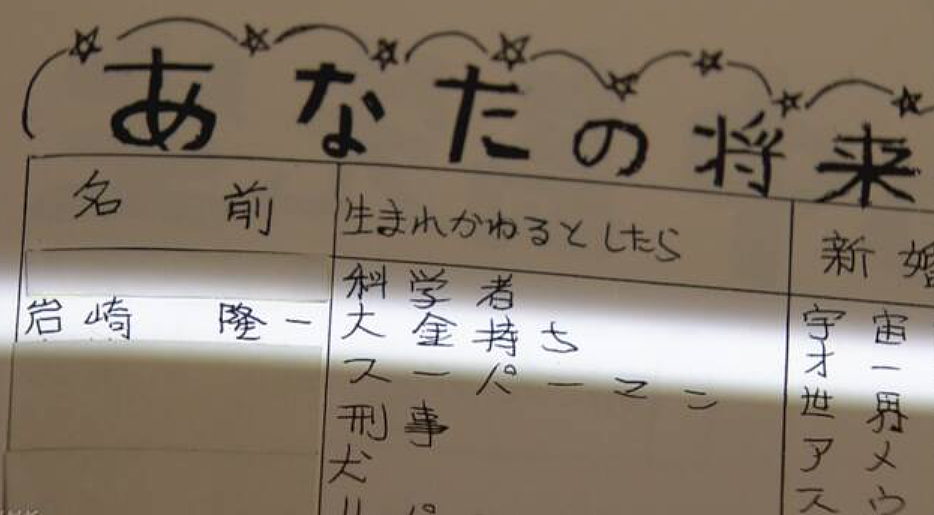 あなたの将来
名前 生まれかわるとしたら 新婚
科学者
岩崎 隆一 大金持ち 宇宙
スーパーマン オー
刑事 世界
犬 アメ
スウ